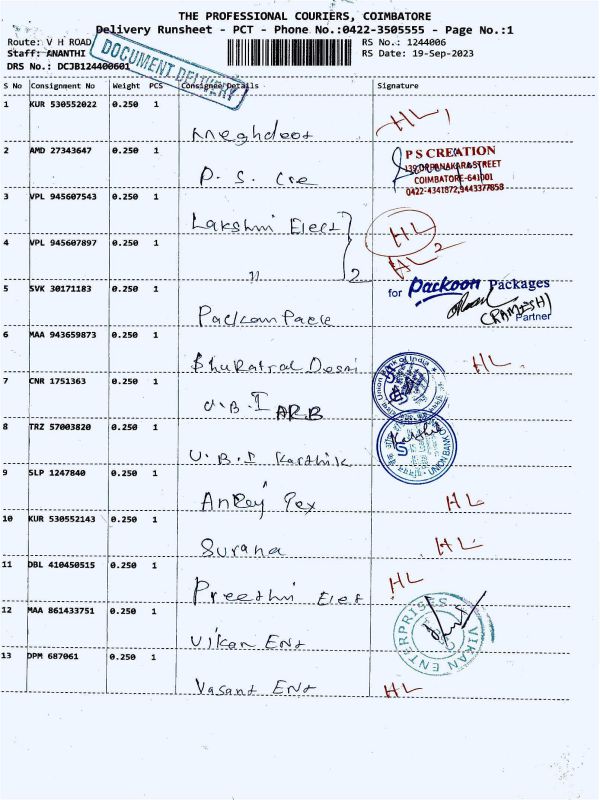 THE PROFESSIONAL COURIERS, COIMBATORE
Delivery Runsheet - PCT - Phone No.:0422-3505555 - Page No.:1
Route: V H ROAD RS No.: 1244006
Staff: ANANTHI RS Date: 19-Sep-2023
DRS No.: DCJB124400601
DOCUMENT DELIVERY
S No Consignment No Weight PCS Consignee Details Signature
1 KUR 530552022 0.250 1
Meghdoot HL
2 AMD 27343647 0.250 1
P. S. Cre
P S CREATION
STREET
COIMBATORE-641001
0422-4341872,9443377858
3 VPL 945607543 0.250 1
Lakshmi Elect HL
4 VPL 945607897 0.250 1
" 2 HL 2
5 SVK 30171183 0.250 1
for Packoon Packages
(RAMESH)
Partner
6 MAA 943659873 0.250 1
HL
7 CNR 1751363 0.250 1
U.B.I ARB
Union Bank of India
8 TRZ 57003820 0.250 1
U.B.I Karthik
Karthik
UNION BANK
9 SLP 1247840 0.250 1
HL
10 KUR 530552143 0.250 1
Surana HL
11 DBL 410450515 0.250 1
Preethi Elet HL
12 MAA 861433751 0.250 1
Vikan Ent
VIKAN ENTERPRISES
13 DPM 687061 0.250 1
Vasant Ent HL